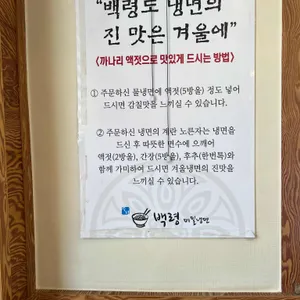 “백령도 냉면의
진 맛은 겨울에”
<까나리 액젓으로 맛있게 드시는 방법>
① 주문하신 물냉면에 액젓(5방울) 정도 넣어
드시면 감칠맛을 느끼실 수 있습니다.
② 주문하신 냉면의 계란 노른자는 냉면을
드신 후 따뜻한 면수에 으깨어
액젓(2방울), 간장(5방울), 후추(한번톡)와
함께 가미하여 드시면 겨울냉면의 진맛을
느끼실 수 있습니다.
백령 메밀냉면